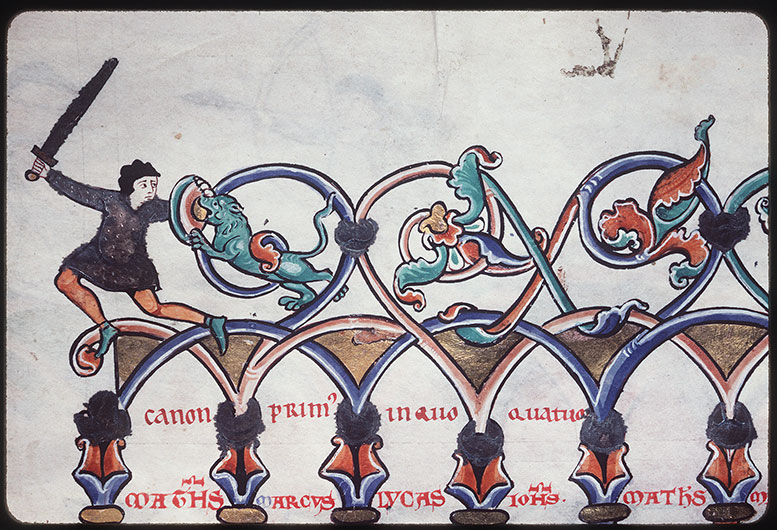 canon prim⁹ in quo quatuo
MATHS MARCVS LVCAS IOHS. MATHS M